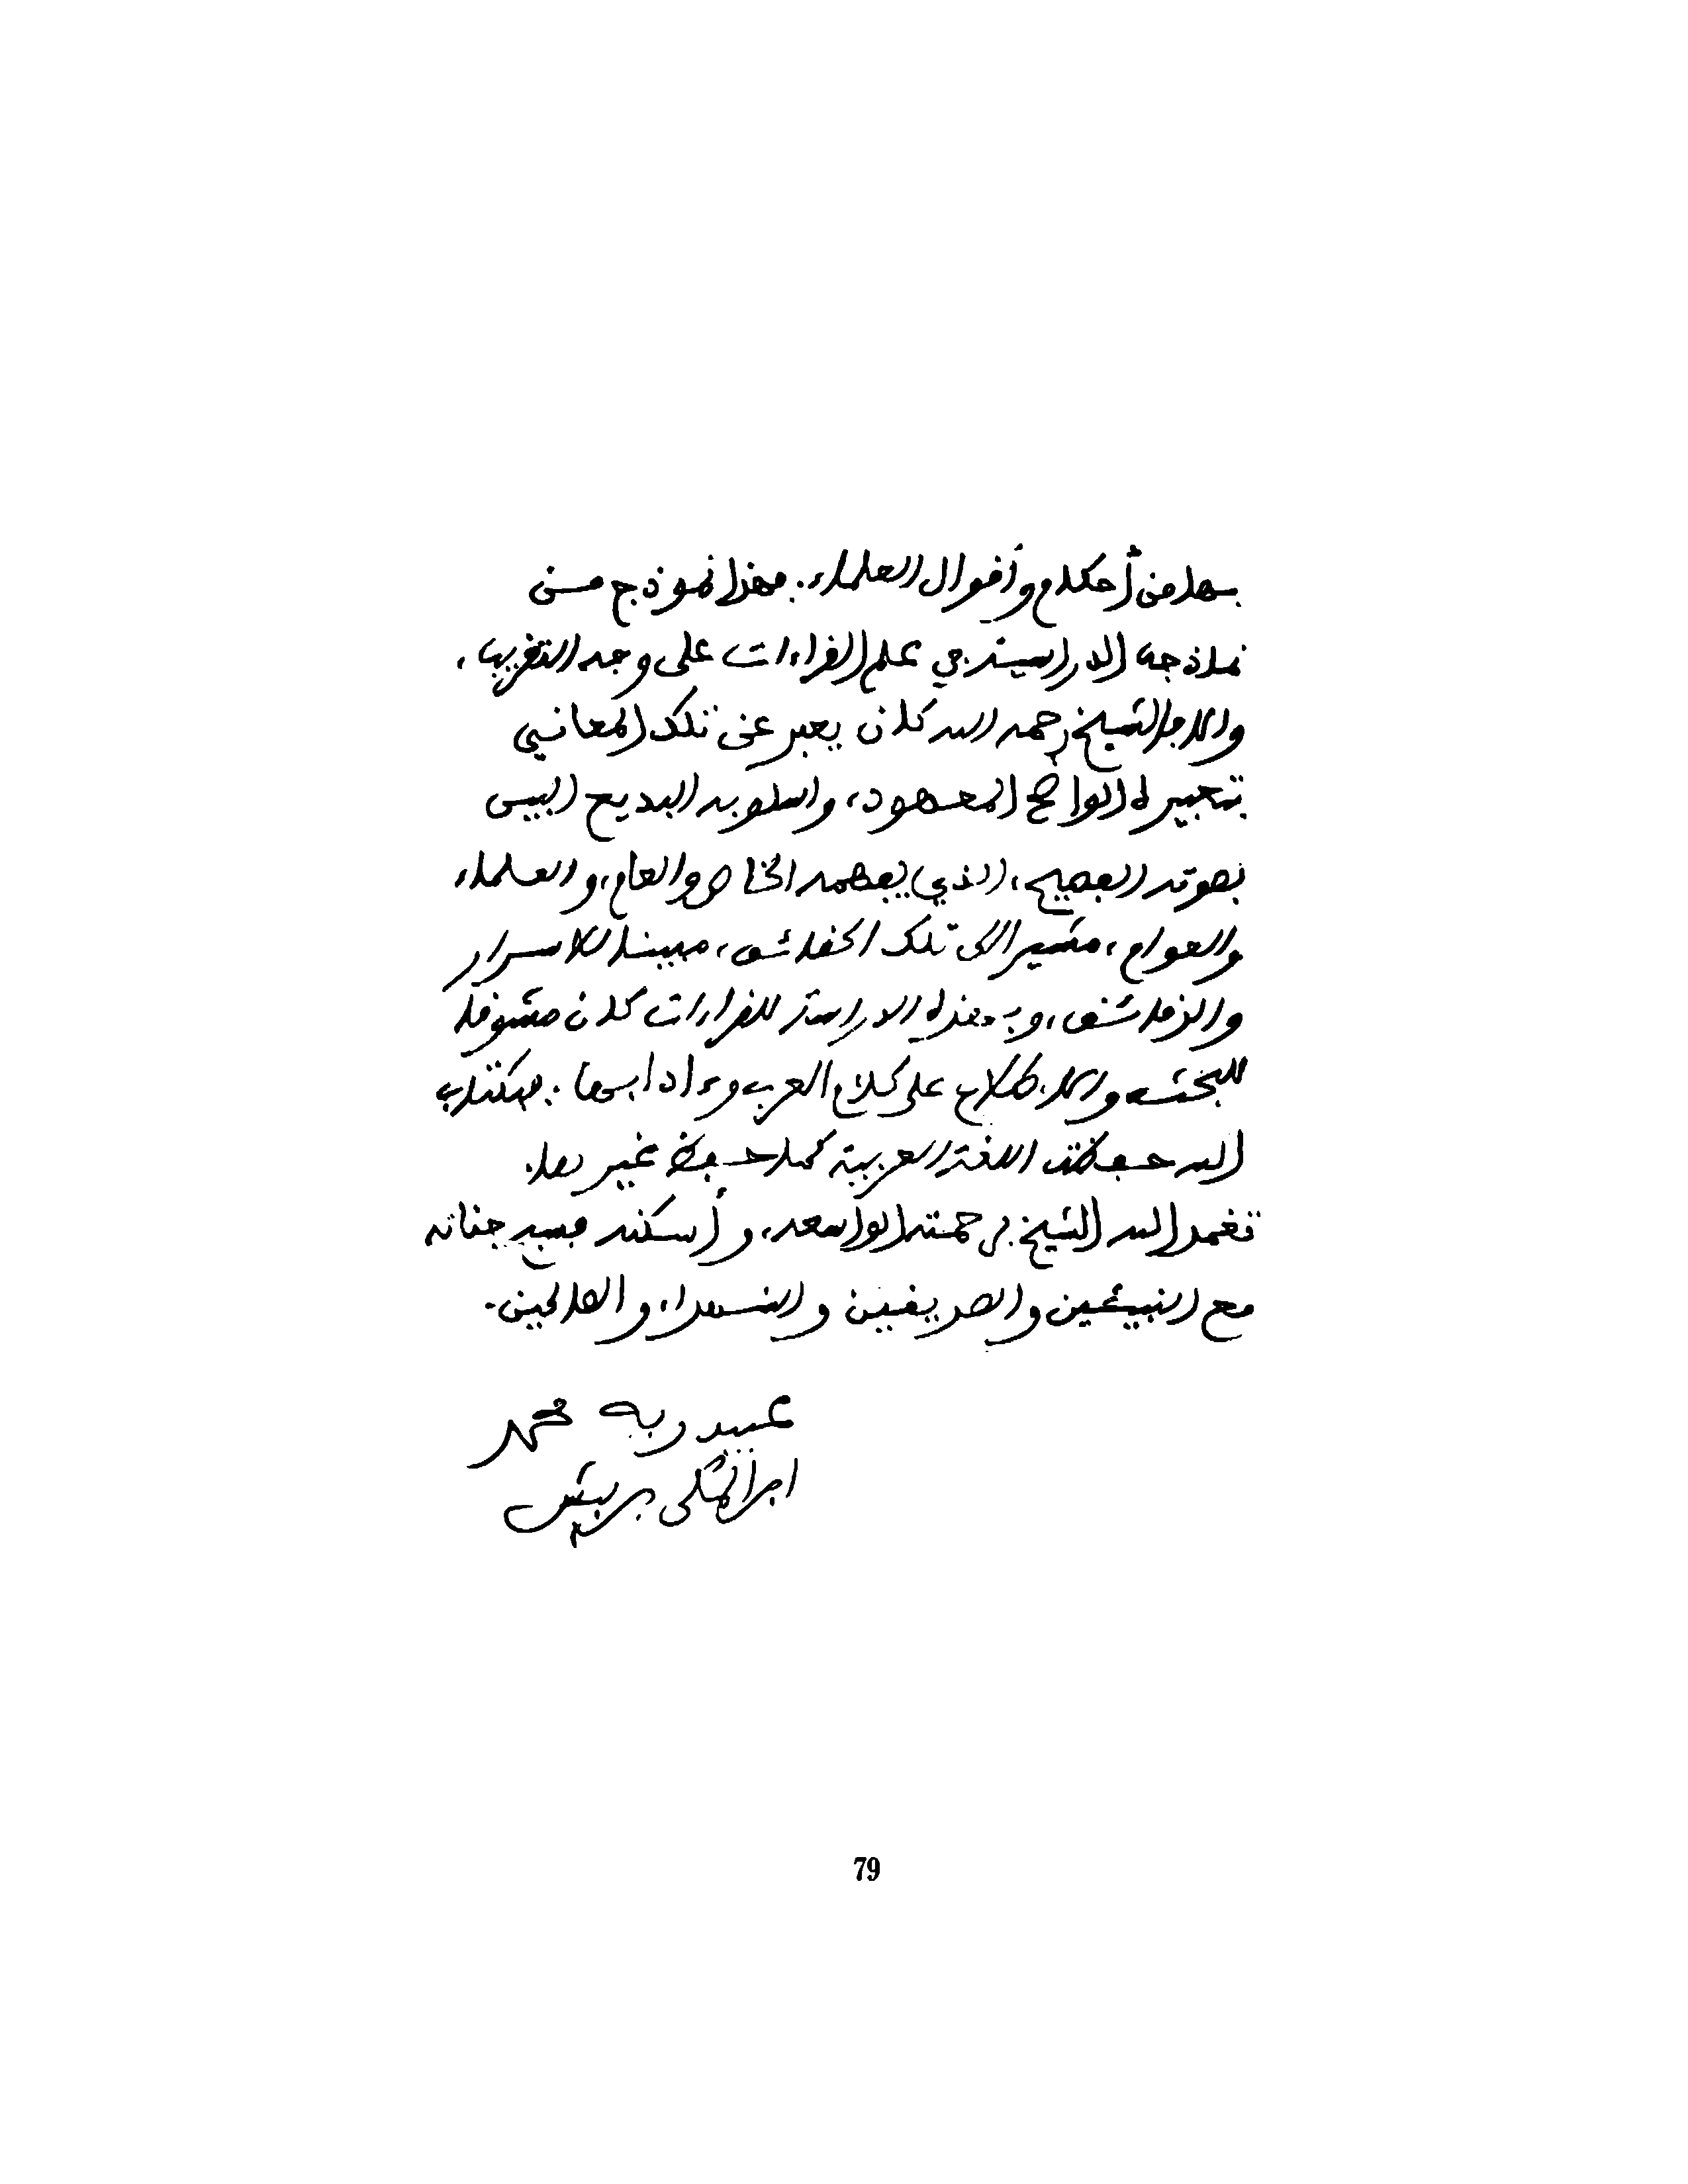 بها من أحكام وأقوال العلماء. فهذا نموذج من
نماذجه الدراسية في علم القراءات على وجه التقريب،
والا فالشيخ رحمه الله كان يعبر عن تلك المعاني
بتعبيره الواضح المعهود، واسلوبه البديع البين
بصوته الفصيح، الذي يفهمه الخاص والعام، والعلماء
والعوام، مشيرا الى تلك الحقائق، مبينا للاسرار
والرقائق، وبهذه الدراسة للقراءات كان مشوقا
للبحث والاطلاع على كلام العرب وءادابها. فبكتاب
الله حفظت اللغة العربية كما حفظ غيرها.
تغمد الله الشيخ برحمته الواسعة، وأسكنه فسيح جناته
مع النبيئين والصديقين والشهداء والصالحين.
عبيد ربه محمد
ابن المكي بربيش
79